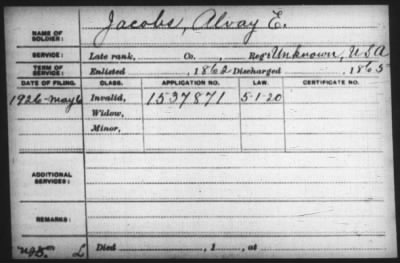 NAME OF SOLDIER: Jacobs, Alvay E.
SERVICE: Late rank, Co. , Reg't Unknown, USA
TERM OF SERVICE: Enlisted , 1862 Discharged , 1865
DATE OF FILING. CLASS. APPLICATION NO. LAW. CERTIFICATE NO.
1926-May 6 Invalid, 1537871 5-1-20
Widow,
Minor,
ADDITIONAL SERVICES:
REMARKS:
L Died , 1 , at